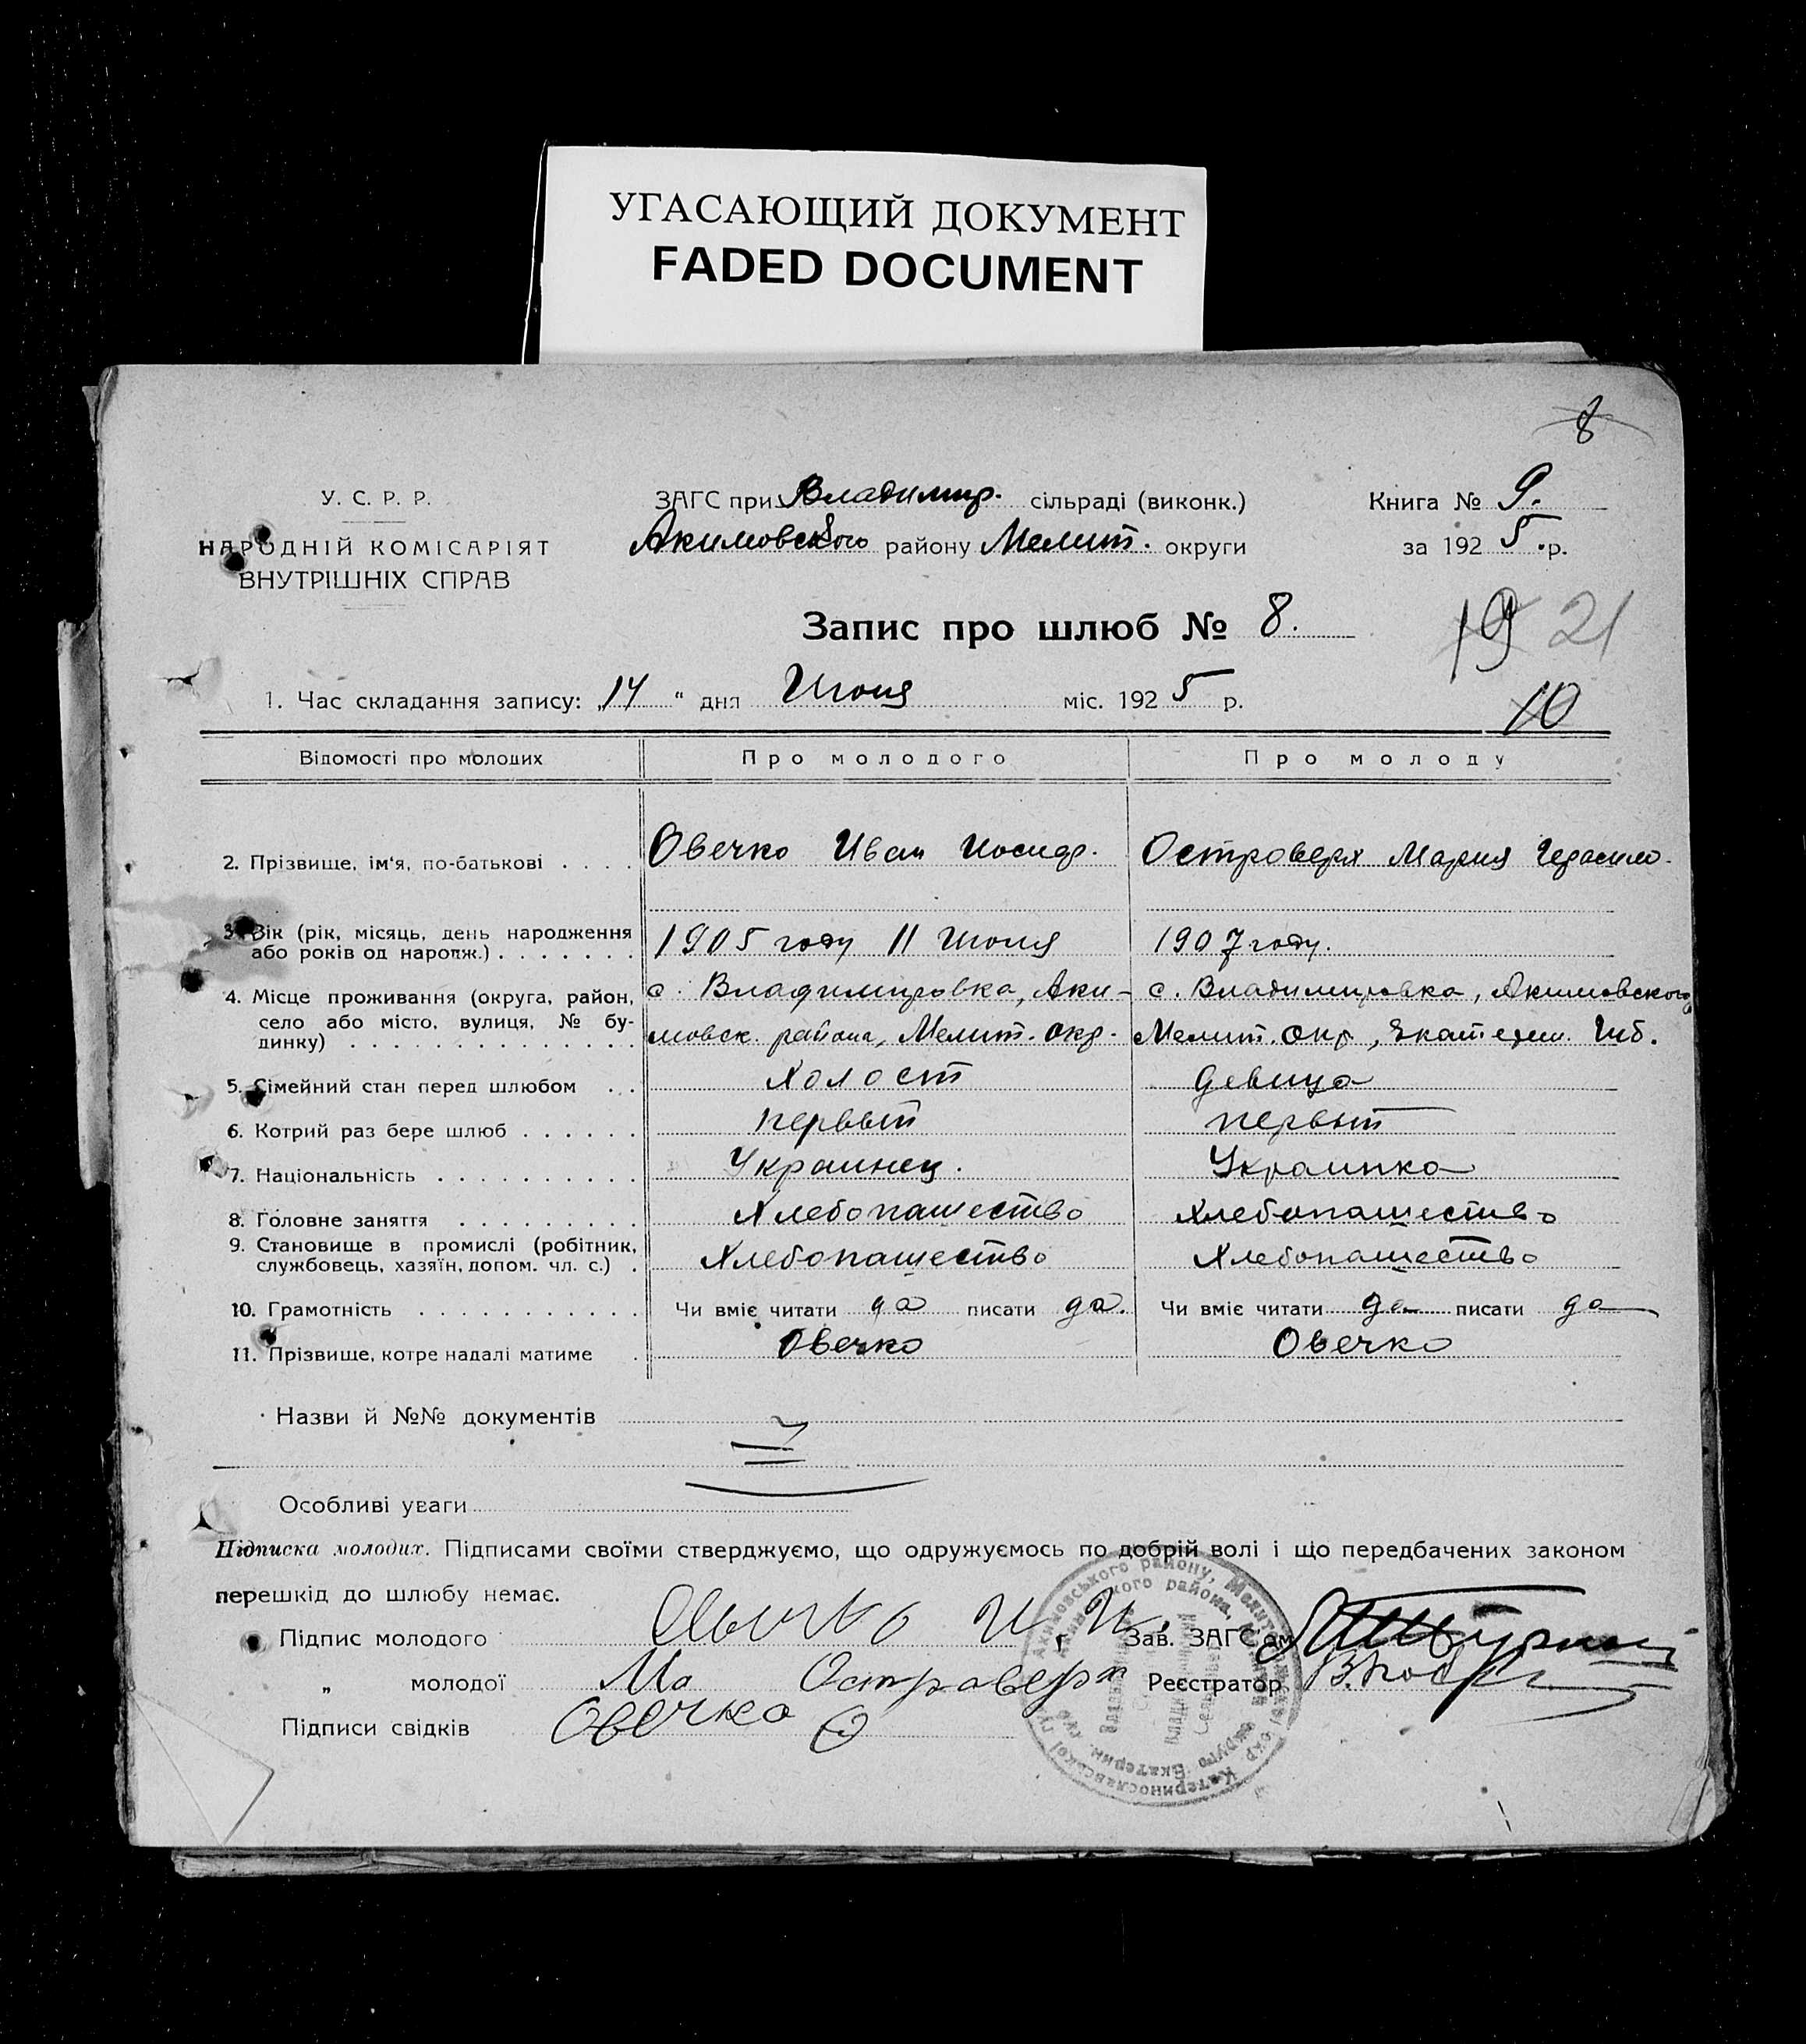 УГАСАЮЩИЙ ДОКУМЕНТ
FADED DOCUMENT
8
У. С. Р. Р.
НАРОДНІЙ КОМІСАРІЯТ
ВНУТРІШНІХ СПРАВ
ЗАГС при Владимир. сільраді (виконк.)
Акимовского району Мелит. округи
Книга № 9.
за 1925 р.
Запис про шлюб № 8.
19 21
1. Час складання запису: „14 " дня Июня міс. 1925 р.
10
Відомості про молодих Про молодого Про молоду
2. Прізвище, ім'я, по-батькові . . . . Овечко Иван Иосиф. Островерх Мария Герасимо.
3. Вік (рік, місяць, день народження
або років од народж.) . . . . . . . 1905 году 11 Июня 1907 году.
4. Місце проживання (округа, район, с. Владимировка, Аки- с. Владимировка, Акимовского
село або місто, вулиця, № бу-
динку) . . . . . . . . . . . . . . мовск. района, Мелит. окр. Мелит. окр., Екатерин. Губ.
5. Сімейний стан перед шлюбом . . Холост девица
6. Котрий раз бере шлюб . . . . . . первый первый
7. Національність . . . . . . . . . . Украинец. Украинка
8. Головне заняття . . . . . . . . . Хлебопашество Хлебопашество
9. Становище в промислі (робітник,
службовець, хазяїн, допом. чл. с.) . Хлебопашество Хлебопашество
10. Грамотність . . . . . . . . . . . Чи вміє читати да писати да. Чи вміє читати да писати да
11. Прізвище, котре надалі матиме . Овечко Овечко
Назви й №№ документів
Особливі уваги
Підписка молодих. Підписами своїми стверджуємо, що одружуємось по добрій волі і що передбачених законом
перешкід до шлюбу немає.
Підпис молодого Овечко И. И. Зав. ЗАГС'ом
„ молодої Ма Островерх Реєстратор
Підписи свідків Овечко
Акимовського району, Мелит
кого района,
Катеринославської
округа Екатерин. губ.